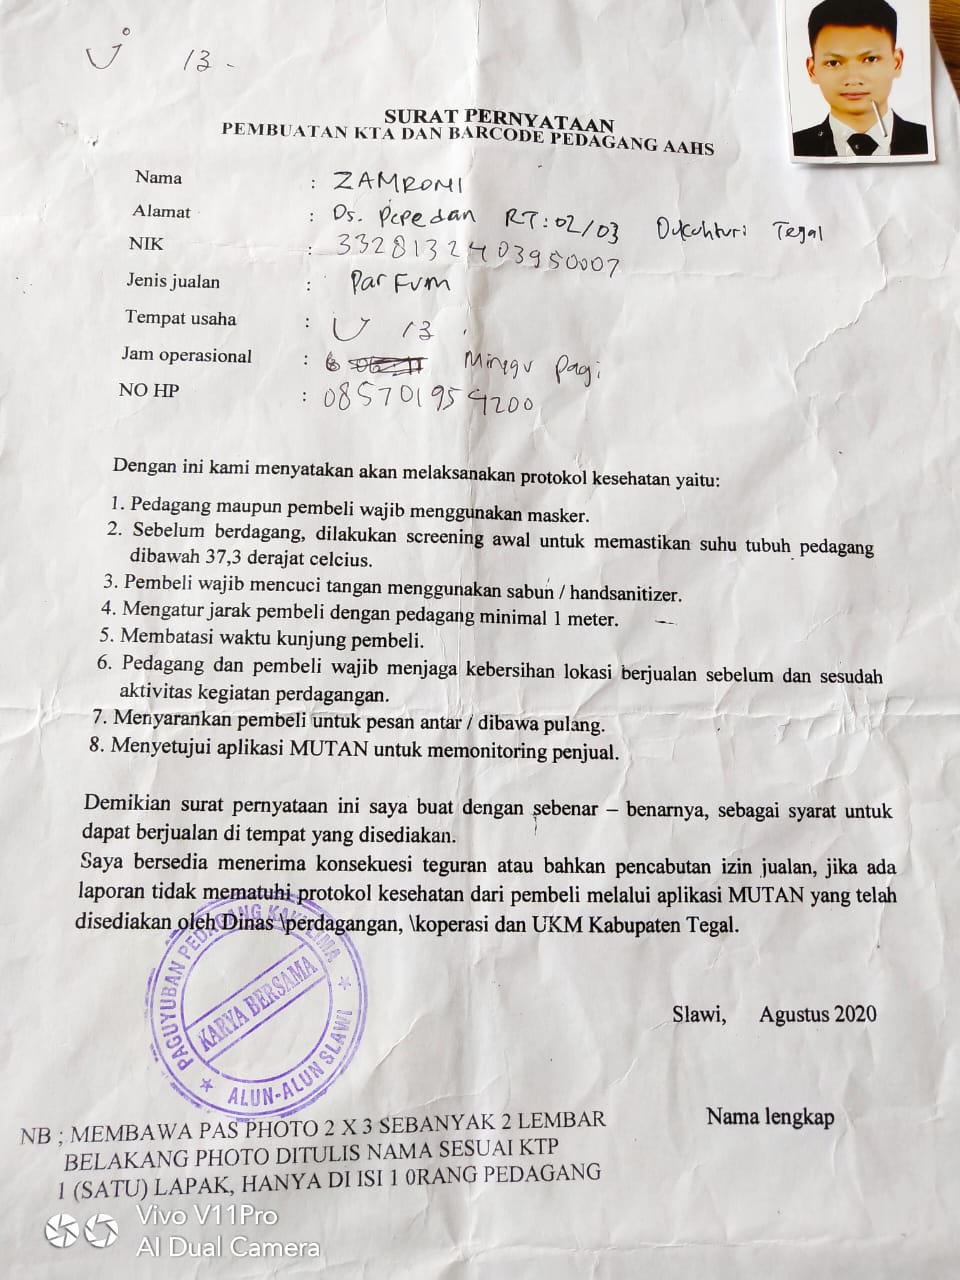 U 13 -
SURAT PERNYATAAN
PEMBUATAN KTA DAN BARCODE PEDAGANG AAHS
Nama : ZAMRONI
Alamat : Ds. Pepedan RT:02/03 Dukuhturi Tegal
NIK : 3328132403950007
Jenis jualan : Parfum
Tempat usaha : U 13
Jam operasional : Minggu Pagi
NO HP : 085701954200
Dengan ini kami menyatakan akan melaksanakan protokol kesehatan yaitu:
1. Pedagang maupun pembeli wajib menggunakan masker.
2. Sebelum berdagang, dilakukan screening awal untuk memastikan suhu tubuh pedagang
dibawah 37,3 derajat celcius.
3. Pembeli wajib mencuci tangan menggunakan sabun / handsanitizer.
4. Mengatur jarak pembeli dengan pedagang minimal 1 meter.
5. Membatasi waktu kunjung pembeli.
6. Pedagang dan pembeli wajib menjaga kebersihan lokasi berjualan sebelum dan sesudah
aktivitas kegiatan perdagangan.
7. Menyarankan pembeli untuk pesan antar / dibawa pulang.
8. Menyetujui aplikasi MUTAN untuk memonitoring penjual.
Demikian surat pernyataan ini saya buat dengan sebenar – benarnya, sebagai syarat untuk
dapat berjualan di tempat yang disediakan.
Saya bersedia menerima konsekuesi teguran atau bahkan pencabutan izin jualan, jika ada
laporan tidak mematuhi protokol kesehatan dari pembeli melalui aplikasi MUTAN yang telah
disediakan oleh Dinas \perdagangan, \koperasi dan UKM Kabupaten Tegal.
PAGUYUBAN PEDAGANG KAKI LIMA
KARYA BERSAMA
ALUN-ALUN SLAWI
Slawi, Agustus 2020
Nama lengkap
NB ; MEMBAWA PAS PHOTO 2 X 3 SEBANYAK 2 LEMBAR
BELAKANG PHOTO DITULIS NAMA SESUAI KTP
1 (SATU) LAPAK, HANYA DI ISI 1 0RANG PEDAGANG
Vivo V11Pro
AI Dual Camera